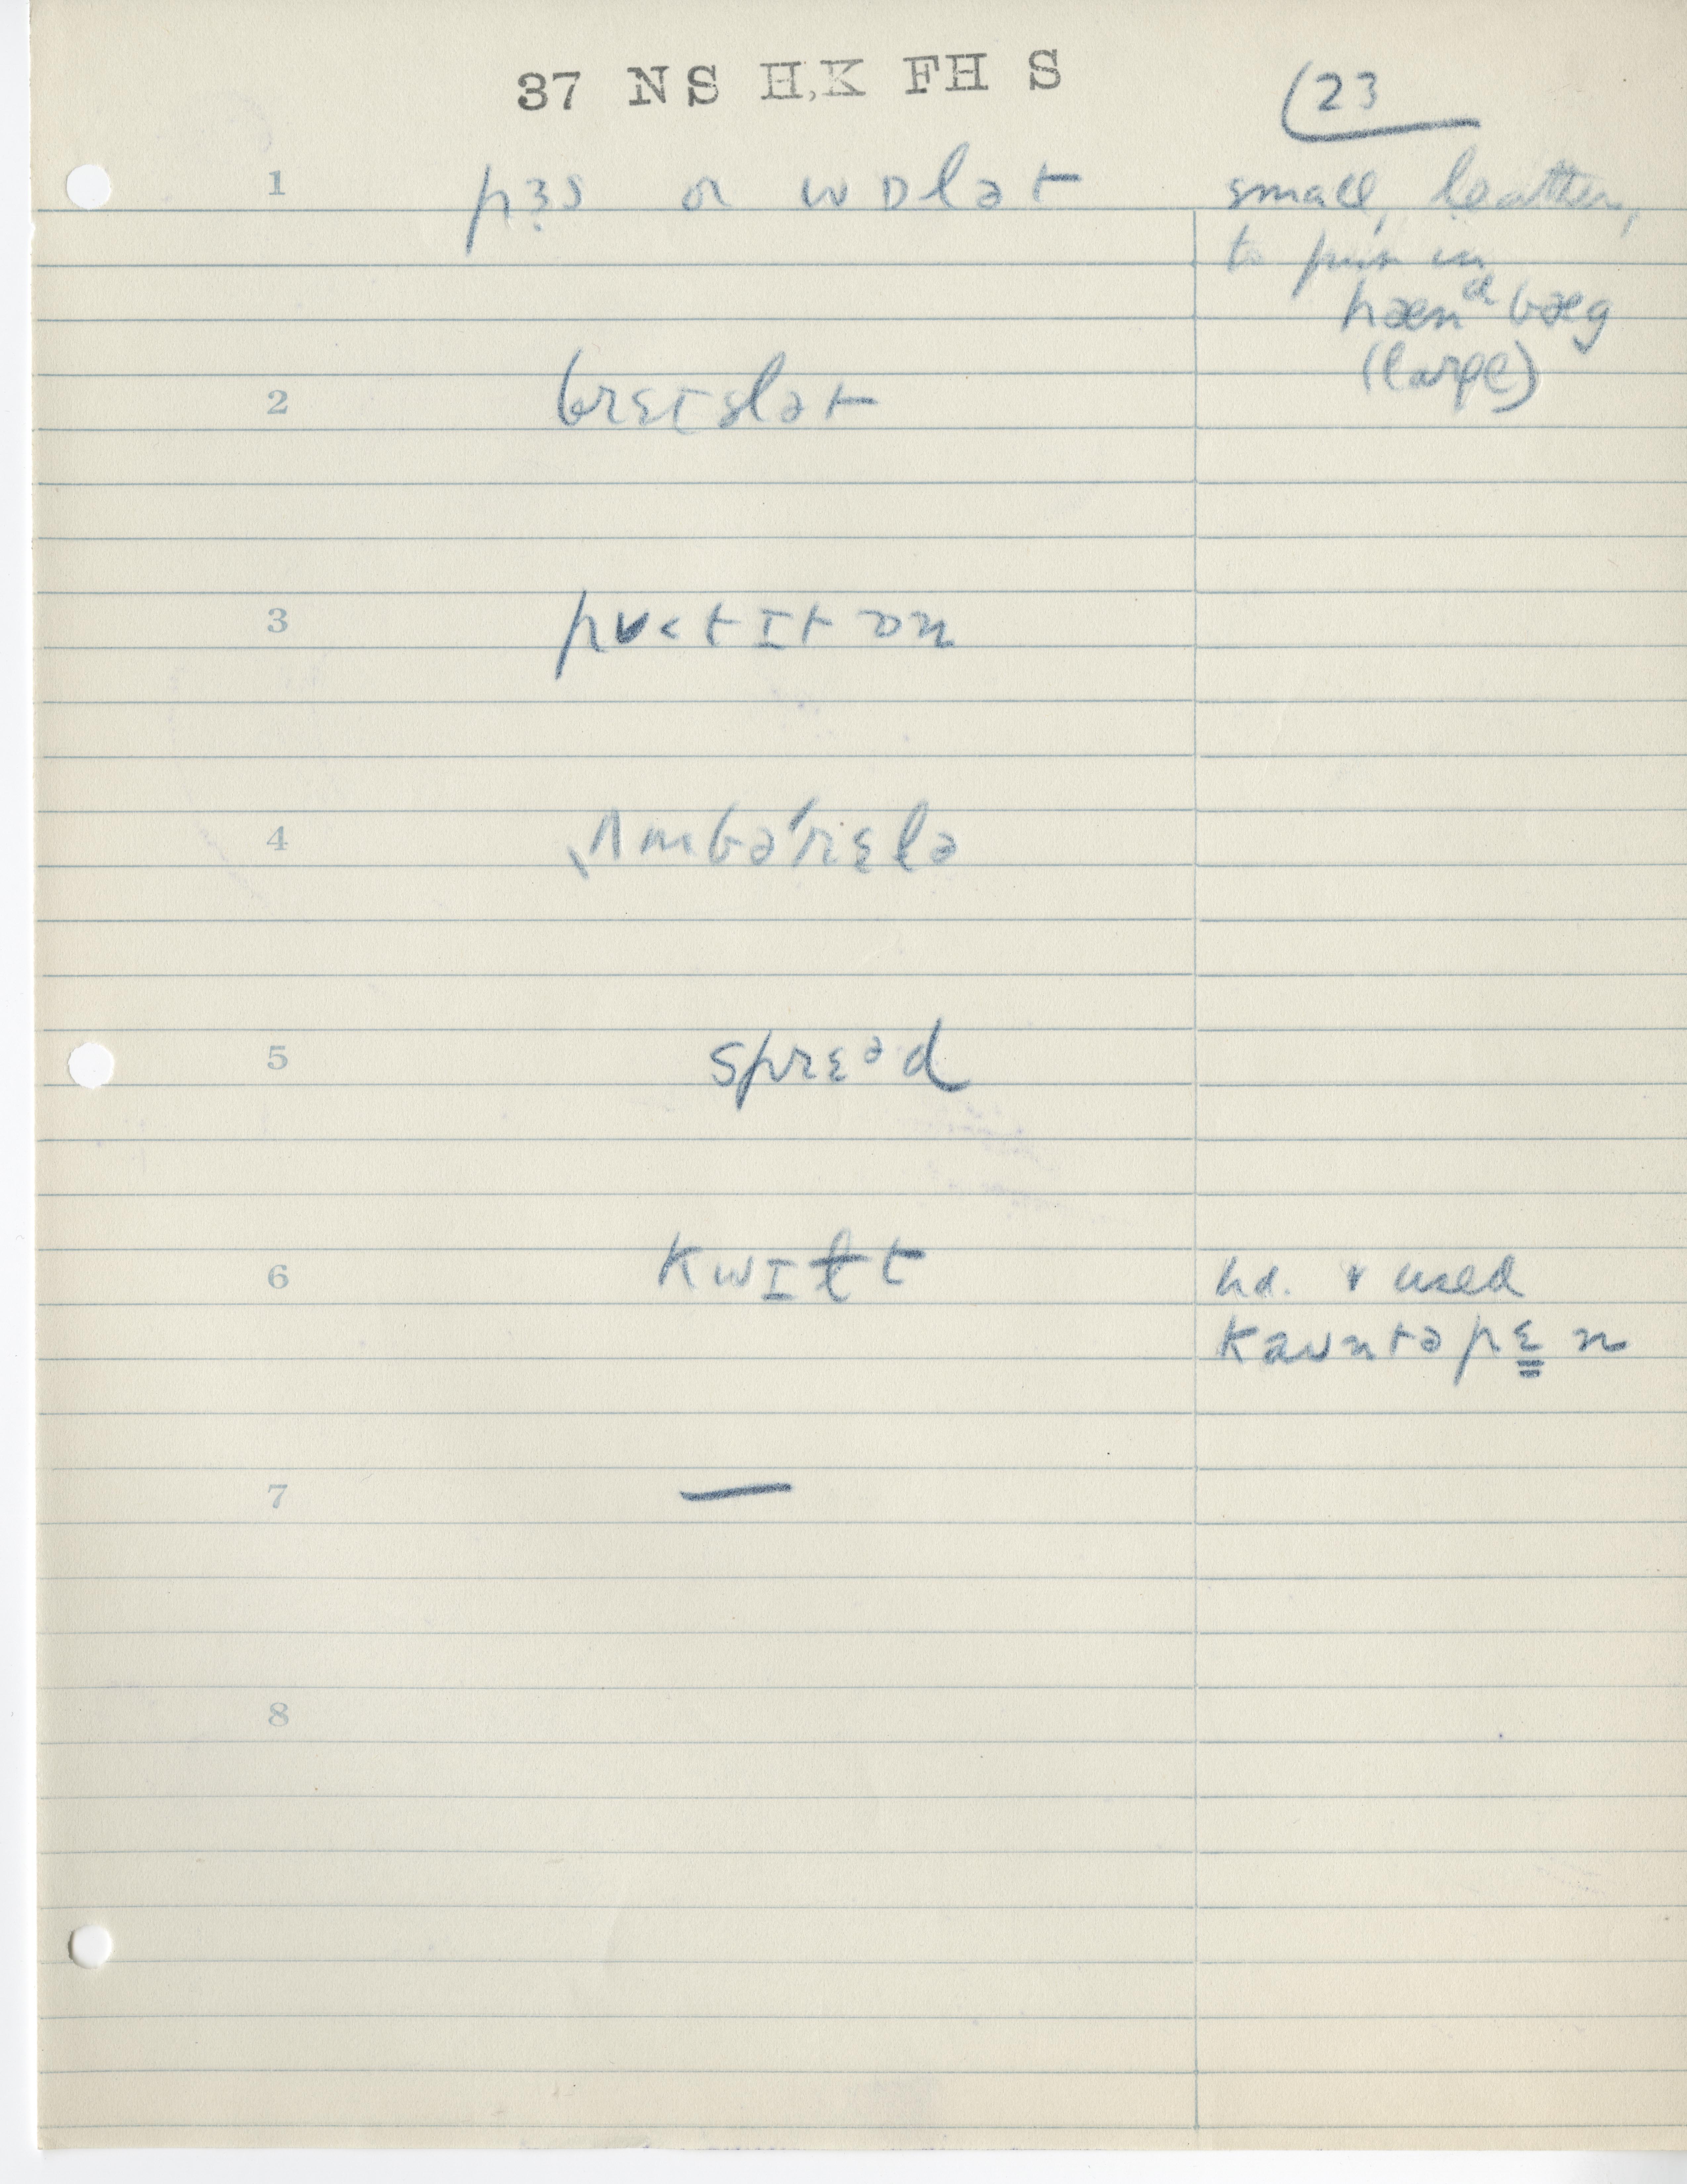 37 NS H,K FH S
(23
1 pɜs or wɒlət
small, leather,
to put in
hænᵈbæg
(large)
2 brɛɪslət
3 pʊ<tɪt ɒn
4 ˌʌmbəˈrɛlə
5 sprɛᵊd
6 kwɪɫt
hd. & used
kaʊntəpɛn
7 —
8